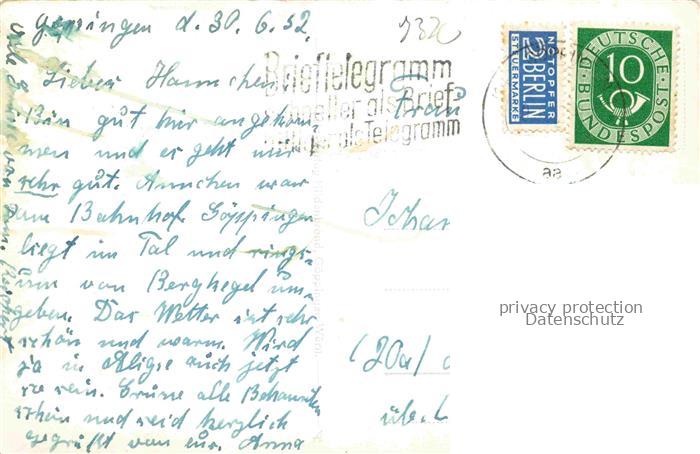 Göppingen d. 30. 6. 52.
Liebes Hannchen
Bin gut hier angekom-
men und es geht mir
sehr gut. Annchen war
am Bahnhof. Göppingen
liegt im Tal und rings-
um von Berghegel um-
geben. Das Wetter ist sehr
schön und warm. Wird
ja in Aligse auch jetzt
so sein. Grüsse alle Bekannten
schön und seid herzlich
gegrüßt von eur. Anna
Brieftelegramm
schneller als Brief
billiger als Telegramm
NOTOPFER
2 BERLIN
STEUERMARKE
DEUTSCHE
10
BUNDESPOST
aa
Frau
Johan
(20a)
üb. L
privacy protection
Datenschutz